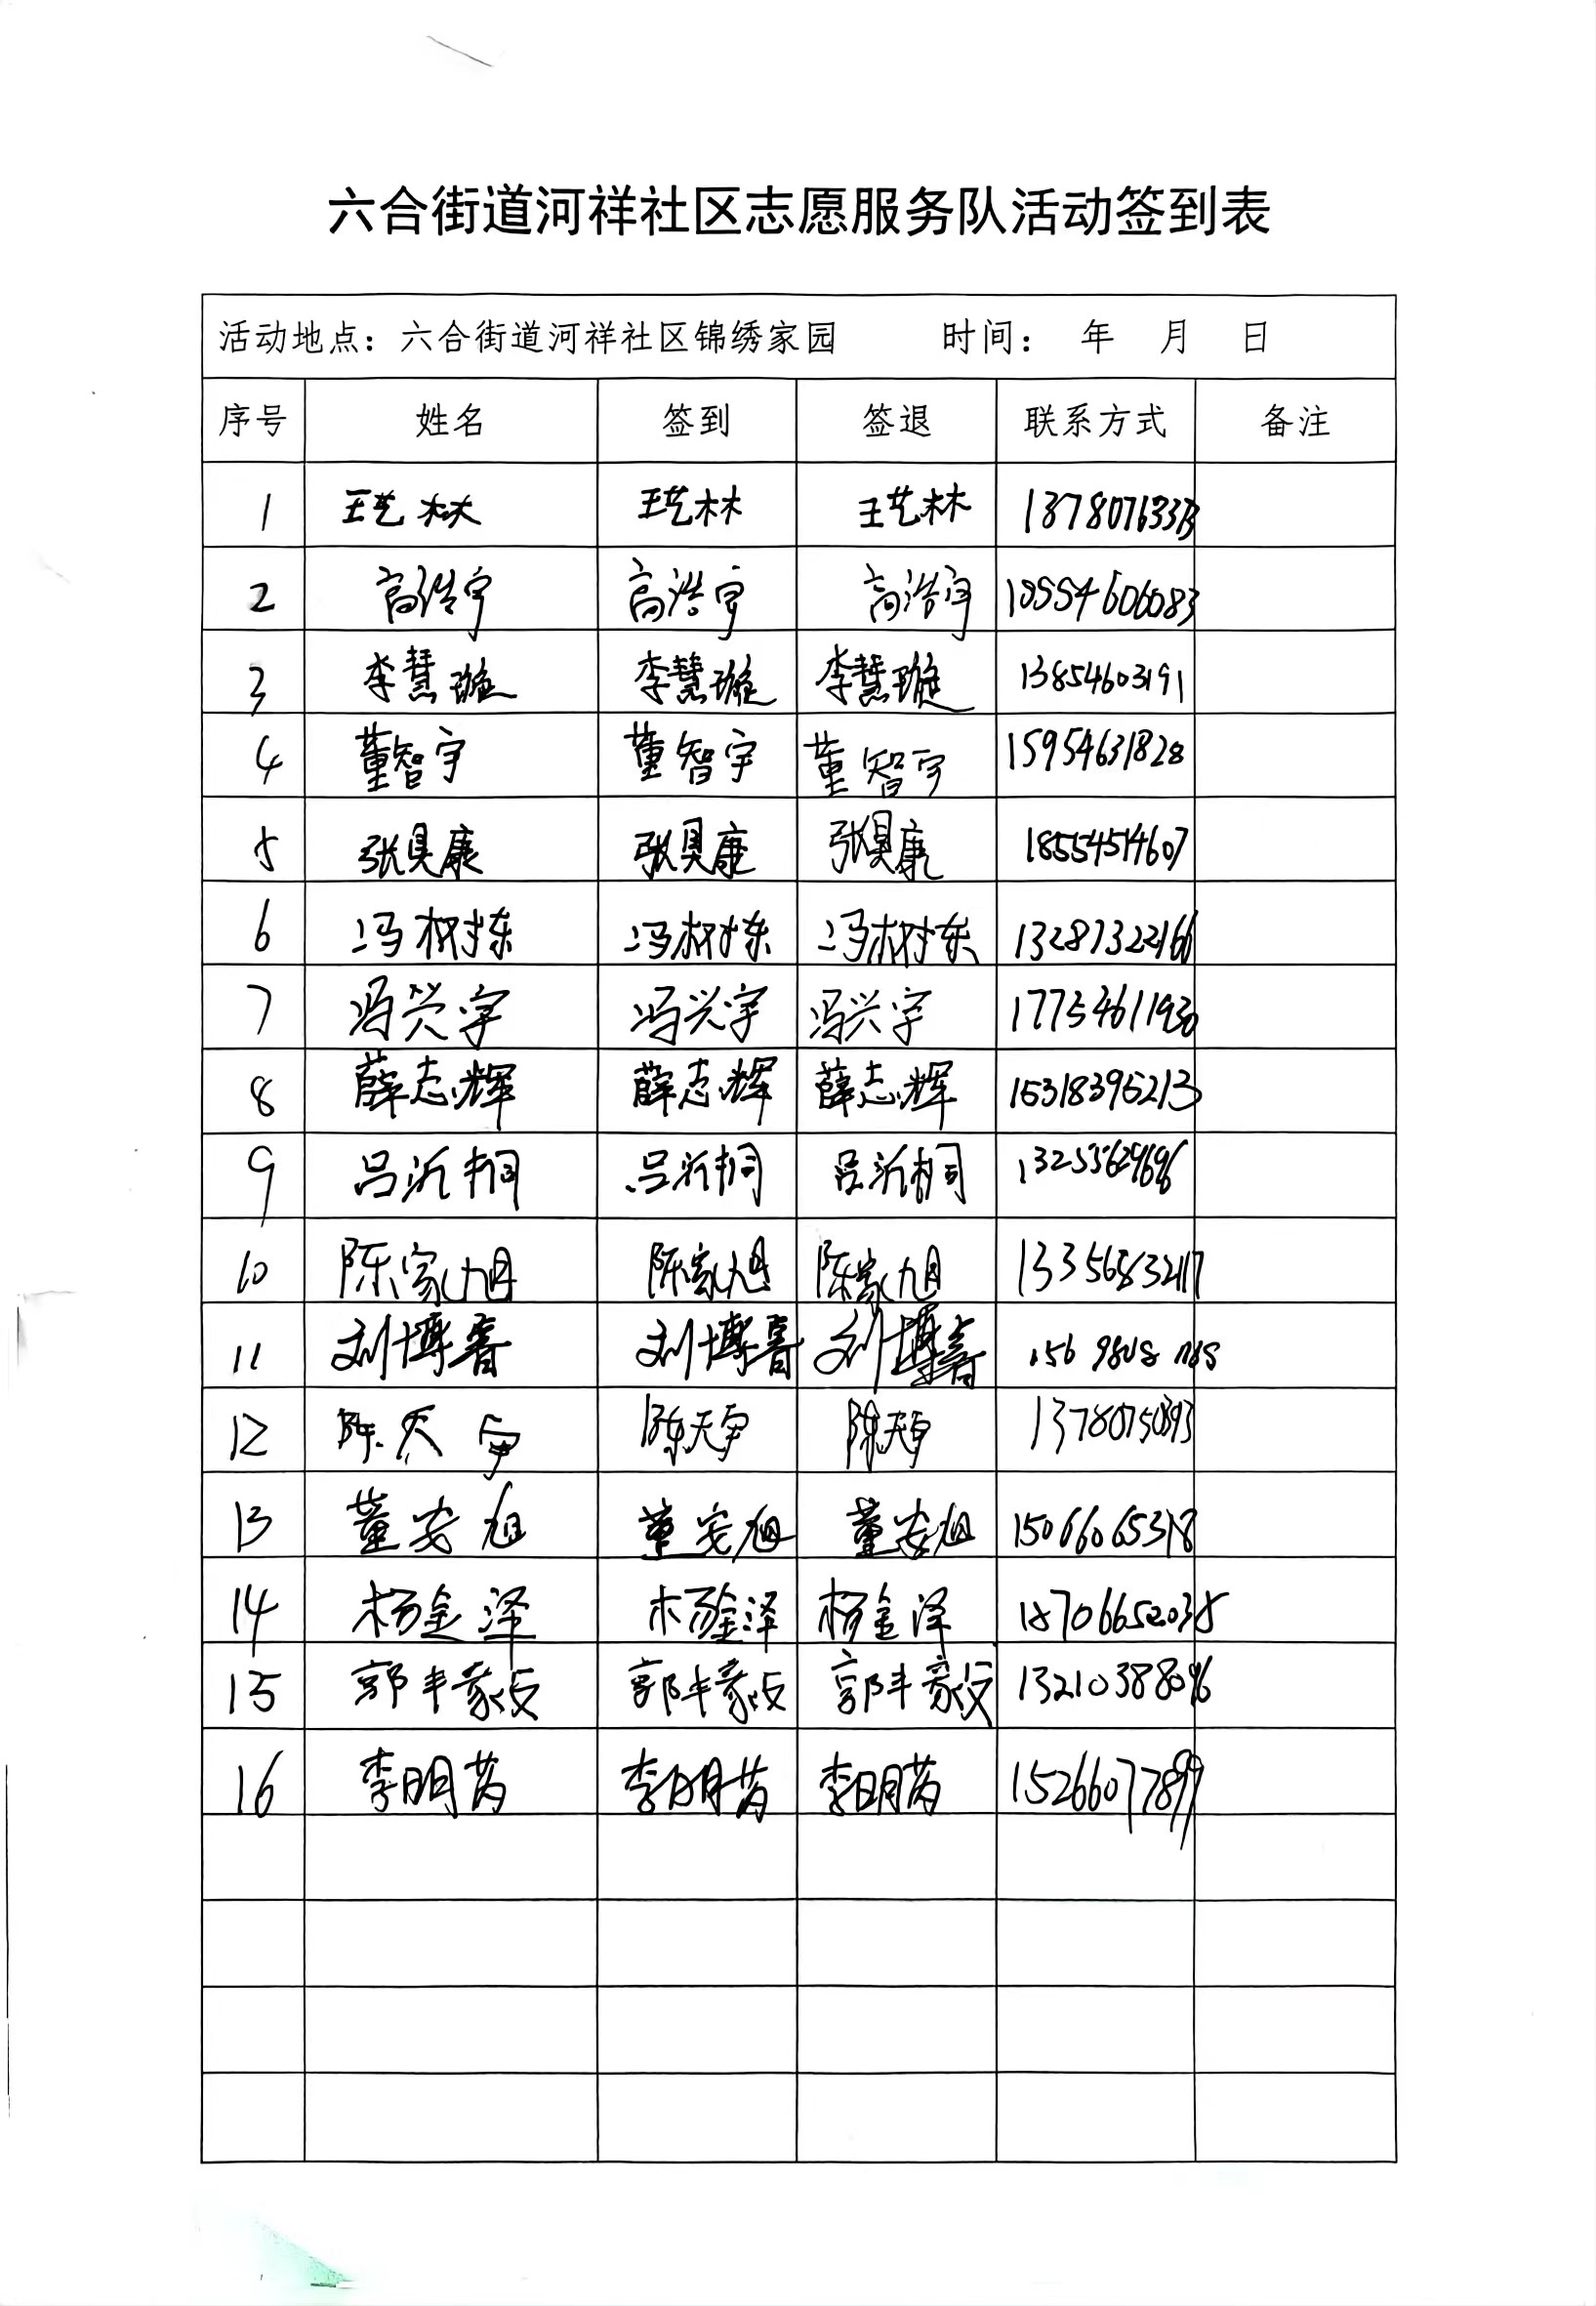 六合街道河祥社区志愿服务队活动签到表
活动地点：六合街道河祥社区锦绣家园 时间： 年 月 日
序号 姓名 签到 签退 联系方式 备注
1 王艺林 王艺林 王艺林
2 高浩宇 高浩宇 高浩宇
3 李慧璇 李慧璇 李慧璇 13854603191
4 董智宇 董智宇 董智宇 15954631828
5 张昊康 张昊康 张昊康 18554514607
6 冯树栋 冯树栋 冯树栋 13287322166
7 冯兴宇 冯兴宇 冯兴宇
8 薛志辉 薛志辉 薛志辉 15318395213
9 吕沂桐 吕沂桐 吕沂桐
10 陈家旭 陈家旭 陈家旭
11 刘博睿 刘博睿 刘博睿
12 陈天宇 陈天宇 陈天宇
13 董安旭 董安旭 董安旭 15066065318
14 杨金泽 杨金泽 杨金泽 18706652035
15 郭丰豪 郭丰豪 郭丰豪 13210388096
16 李明芮 李明芮 李明芮 15266077899